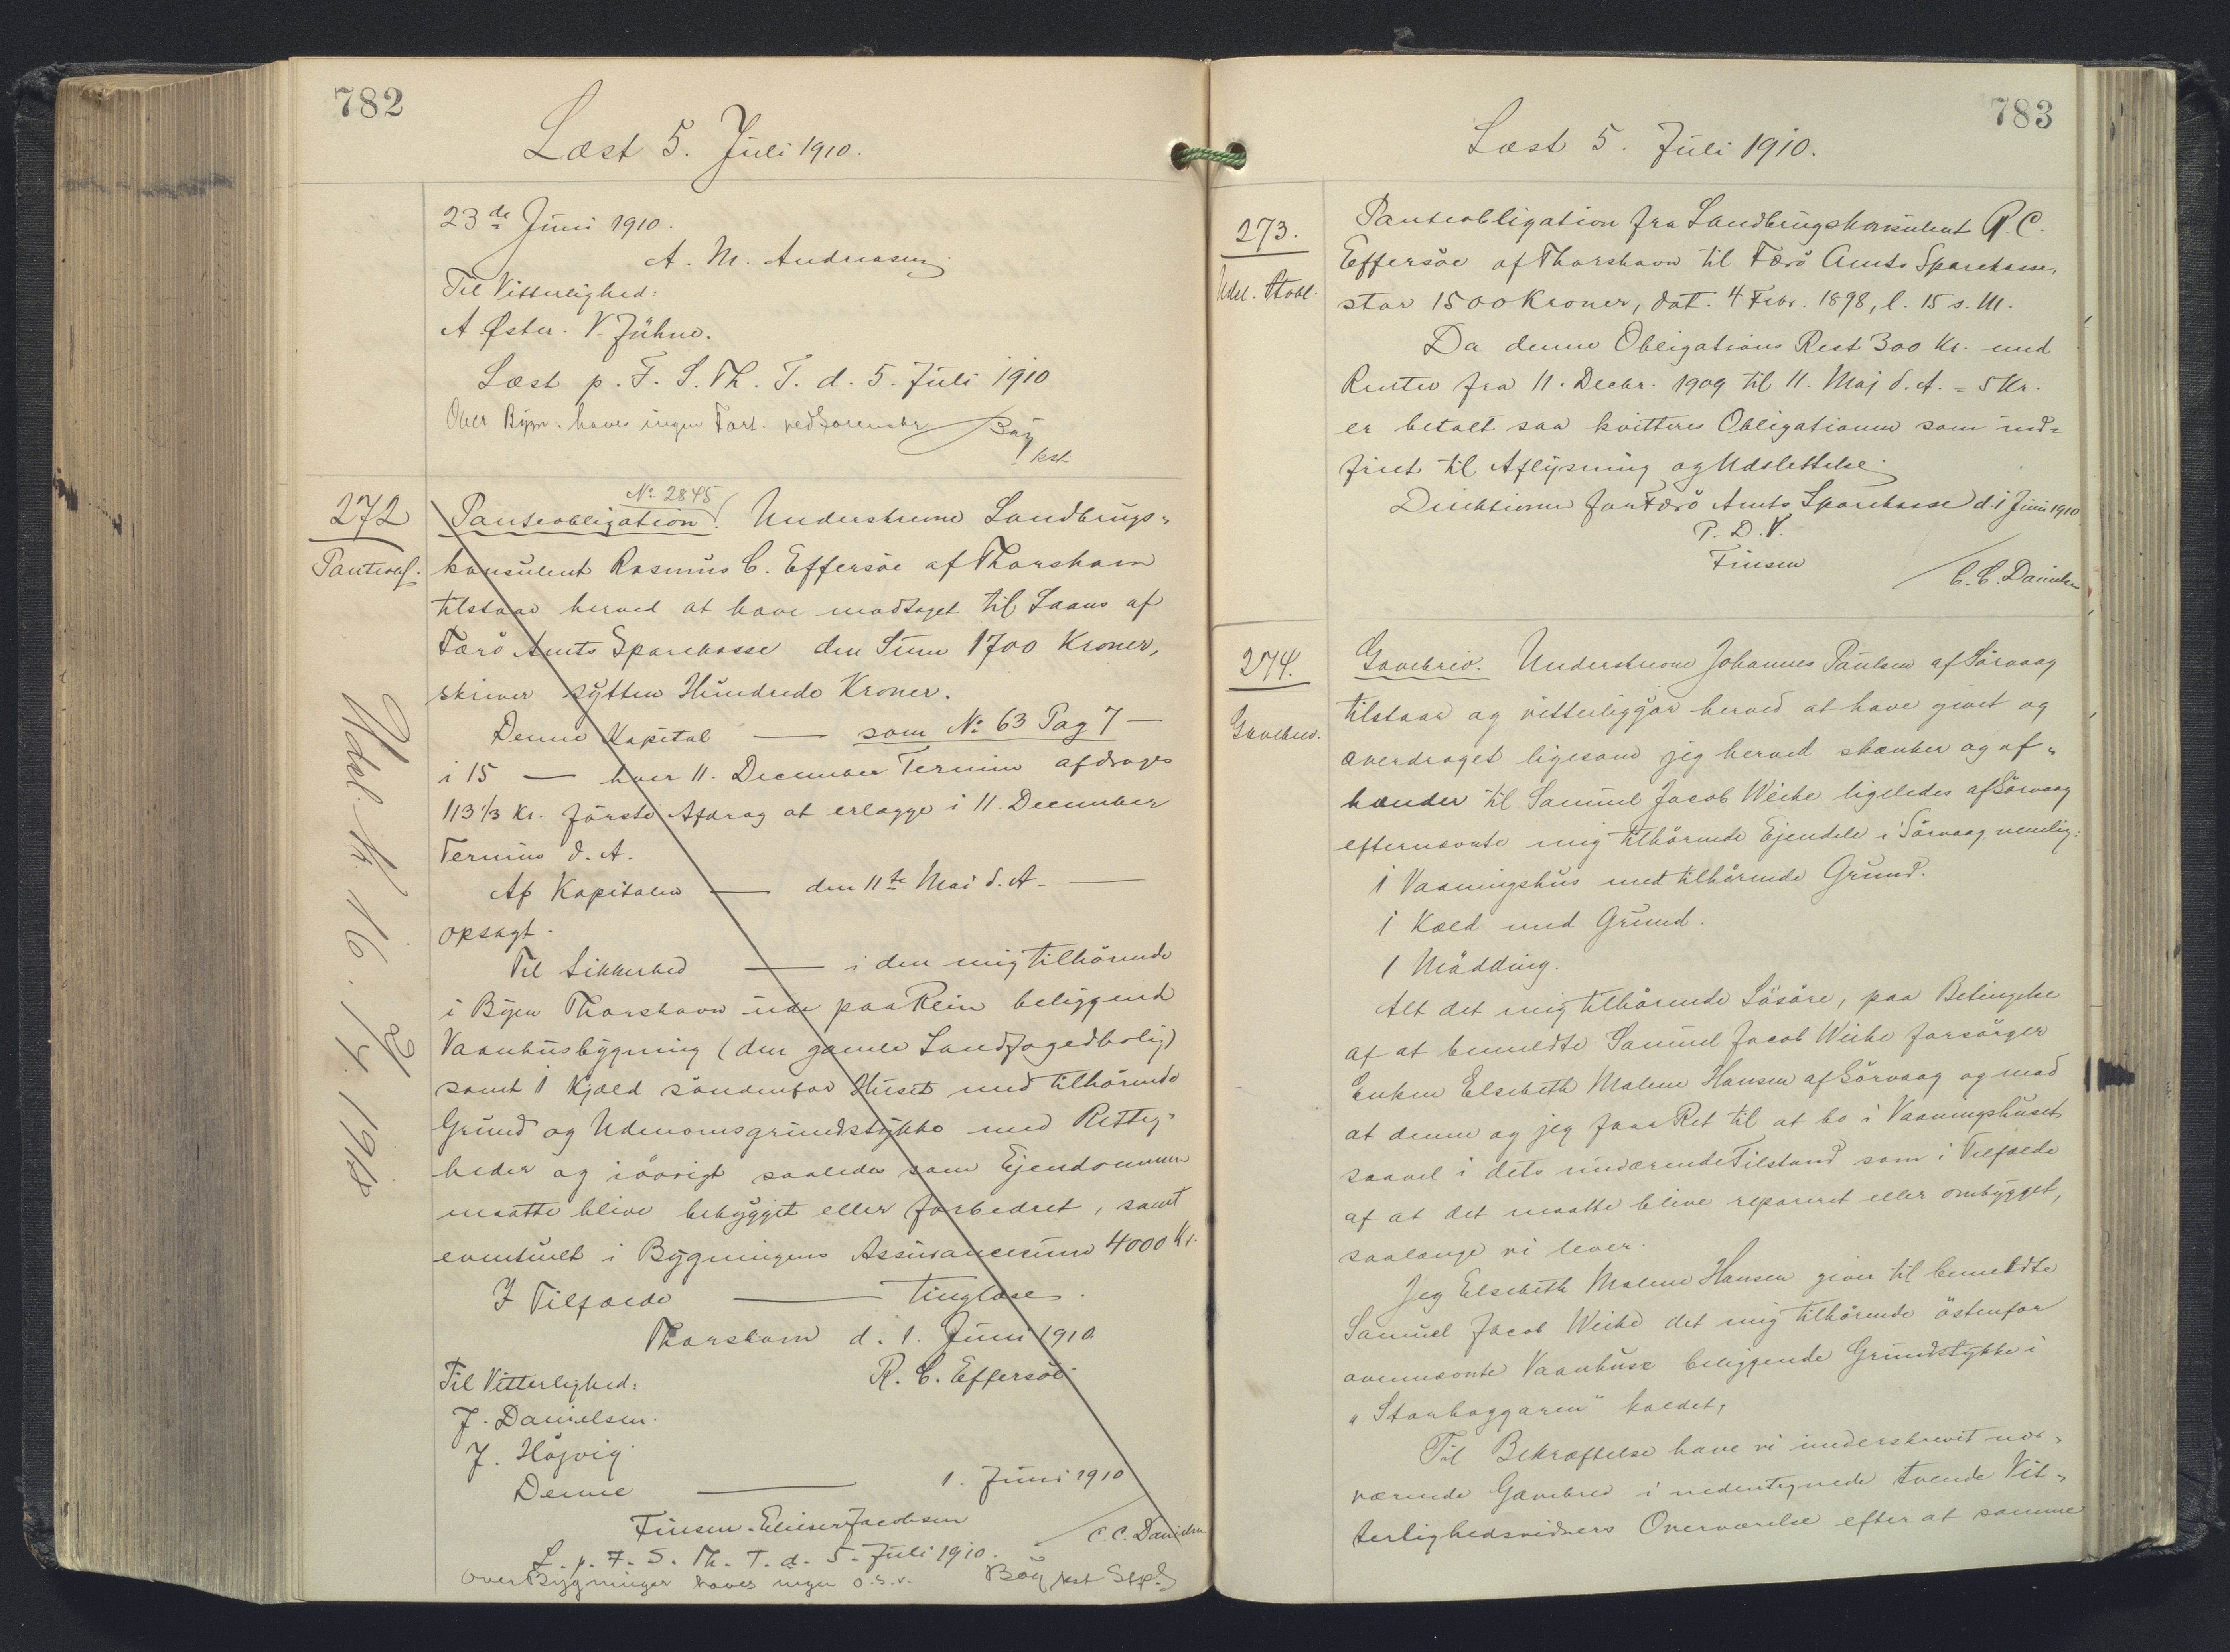 782
Læst 5. Juli 1910.
23de Juni 1910.
A. M. Andreasen
Til Vitterlighed:
A. Øster. V. Jühne.
Læst p. F. S. Th. T. d. 5. Juli 1910
Over Bygn. haves ingen Fort. vedforenstr Bøg
kst
272
Panteobl.
No 2845
Panteobligation. Underskrevne Landbrugs-
konsulent Rasmus C. Effersöe af Thorshavn
tilstaar herved at have modtaget til Laans af
Færö Amts Sparekasse den Sum 1700 Kroner,
skriver sytten Hundrede Kroner.
Denne Kapital — som No 63 Pag 7 —
i 15 — hver 11. December Termin afdrages
113 1/3 Kr. förste Afdrag at erlægge i 11. December
Termin d. A.
Af Kapitalen — den 11te Mai d. A. —
opsagt.
Til Sikkerhed — i den mig tilhörende
i Byen Thorshavn ude paa Rein beliggend
Vaanhusbygning (den gamle Landfogedbolig)
samt 1 Kjæld söndenfor Huset med tilhörende
Grund og Udenomsgrundstykke med Rettig-
heder og iövrigt saaledes som Ejendommen
maatte blive bebygget eller forbedret, samt
eventuelt i Bygningens Assurancesum 4000 Kr.
I Tilfælde — tinglæse.
Thorshavn d. 1. Juni 1910
Til Vitterlighed: R. C. Effersöe
J. Danielsen.
J. Höjvig.
Denne — 1. Juni 1910
Finsen. Elieser Jacobsen
C. C. Danielsen
L. p. F. S. Th. T. d. 5. Juli 1910.
Over Bygninger haves ingen o.s.v. Bög kst
Udsl. Nr. 16. 1918
783
Læst 5. Juli 1910.
273.
Udsl. Atobl.
Panteobligation fra Landbrugskonsulent R. C.
Effersöe af Thorshavn til Færö Amts Sparekasse,
stor 1500 Kroner, dat. 4 Febr. 1898, l. 15 s. M.
Da denne Obligations Rest 300 Kr. med
Renter fra 11. Decbr. 1909 til 11. Maj d. A. = 5 Kr.
er betalt saa kvitteres Obligationen som ind=
friet til Aflysning og Udslettelse.
Direktionen for Færö Amts Sparekasse d. 1 Juni 1910
P. D. V.
Finsen
C. C. Danielsen
274.
Gavebrev.
Gavebrev. Underskrevne Johannes Paulsen af Sörvaag
tilstaar og vitterliggjör herved at have givet og
overdraget ligesom jeg herved skænker og af-
hænder til Samuel Jacob Weihe ligeledes af Sörvaag
efternævnte mig tilhörende Ejendele i Sörvaag nemlig:
1 Vaaningshus med tilhörende Grund.
1 Kæld med Grund.
1 Mödding.
Alt det mig tilhörende Lösöre, paa Betingelse
af at bemeldte Samuel Jacob Weihe forsörger
Enken Elsebeth Malene Hansen af Sörvaag og mod
at denne og jeg faar Ret til at bo i Vaaningshuset
saavel i dets nuværende Tilstand som i Tilfælde
af at det maatte blive repareret eller ombygget,
saalænge vi lever.
Jeg Elsebeth Malene Hansen giver til bemeldte
Samuel Jacob Weihe det mig tilhörende östenfor
ovennævnte Vaanhuse beliggende Grundstykke i
„Storhaggaren" kaldet,
Til Bekræftelse have vi underskrevet nær-
værende Gavebrev i nedentegnede tvende Vit-
terlighedsvidners Overværelse efter at samme